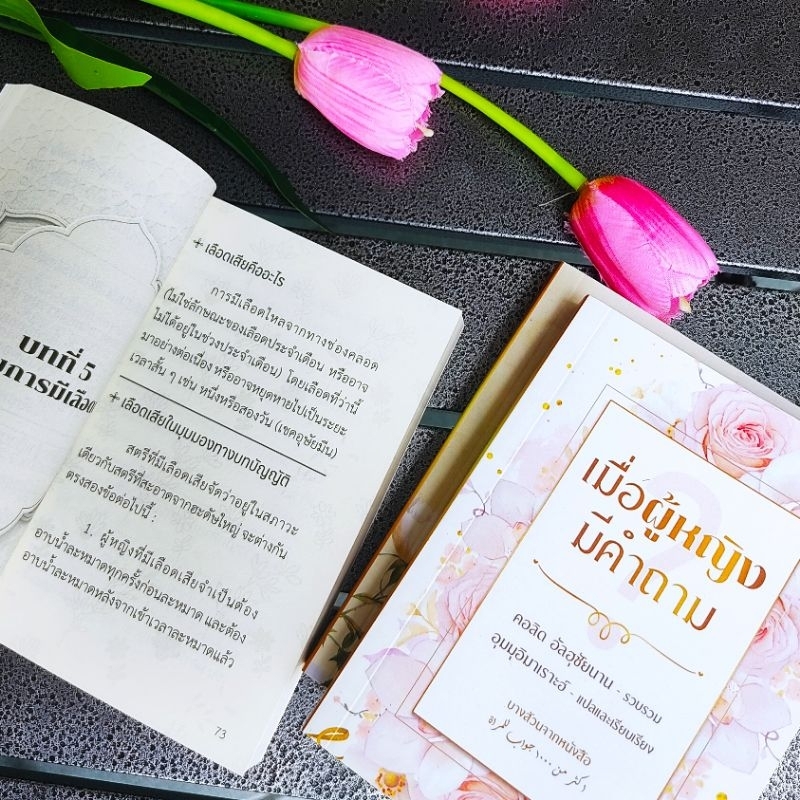 บทที่ 5
+ เลือดเสียคืออะไร
การมีเลือดไหลจากทางช่องคลอด
(ไม่ใช่ลักษณะของเลือดประจำเดือน หรืออาจ
ไม่ได้อยู่ในช่วงประจำเดือน) โดยเลือดที่ว่านี้
มาอย่างต่อเนื่อง หรืออาจหยุดหายไปเป็นระยะ
เวลาสั้น ๆ เช่น หนึ่งหรือสองวัน (เชคอุษัยมีน)
+ เลือดเสียในมุมมองทางบทบัญญัติ
สตรีที่มีเลือดเสียจัดว่าอยู่ในสภาวะ
เดียวกับสตรีที่สะอาดจากฮะดัษใหญ่ จะต่างกัน
ตรงสองข้อต่อไปนี้ :
1. ผู้หญิงที่มีเลือดเสียจำเป็นต้อง
อาบน้ำละหมาดทุกครั้งก่อนละหมาด และต้อง
อาบน้ำละหมาดหลังจากเข้าเวลาละหมาดแล้ว
73
เมื่อผู้หญิง
มีคำถาม
?
คอลิด อัลฮุซัยนาน - รวบรวม
อุมมุอิมาเราะฮ์ - แปลและเรียบเรียง
บางส่วนจากหนังสือ